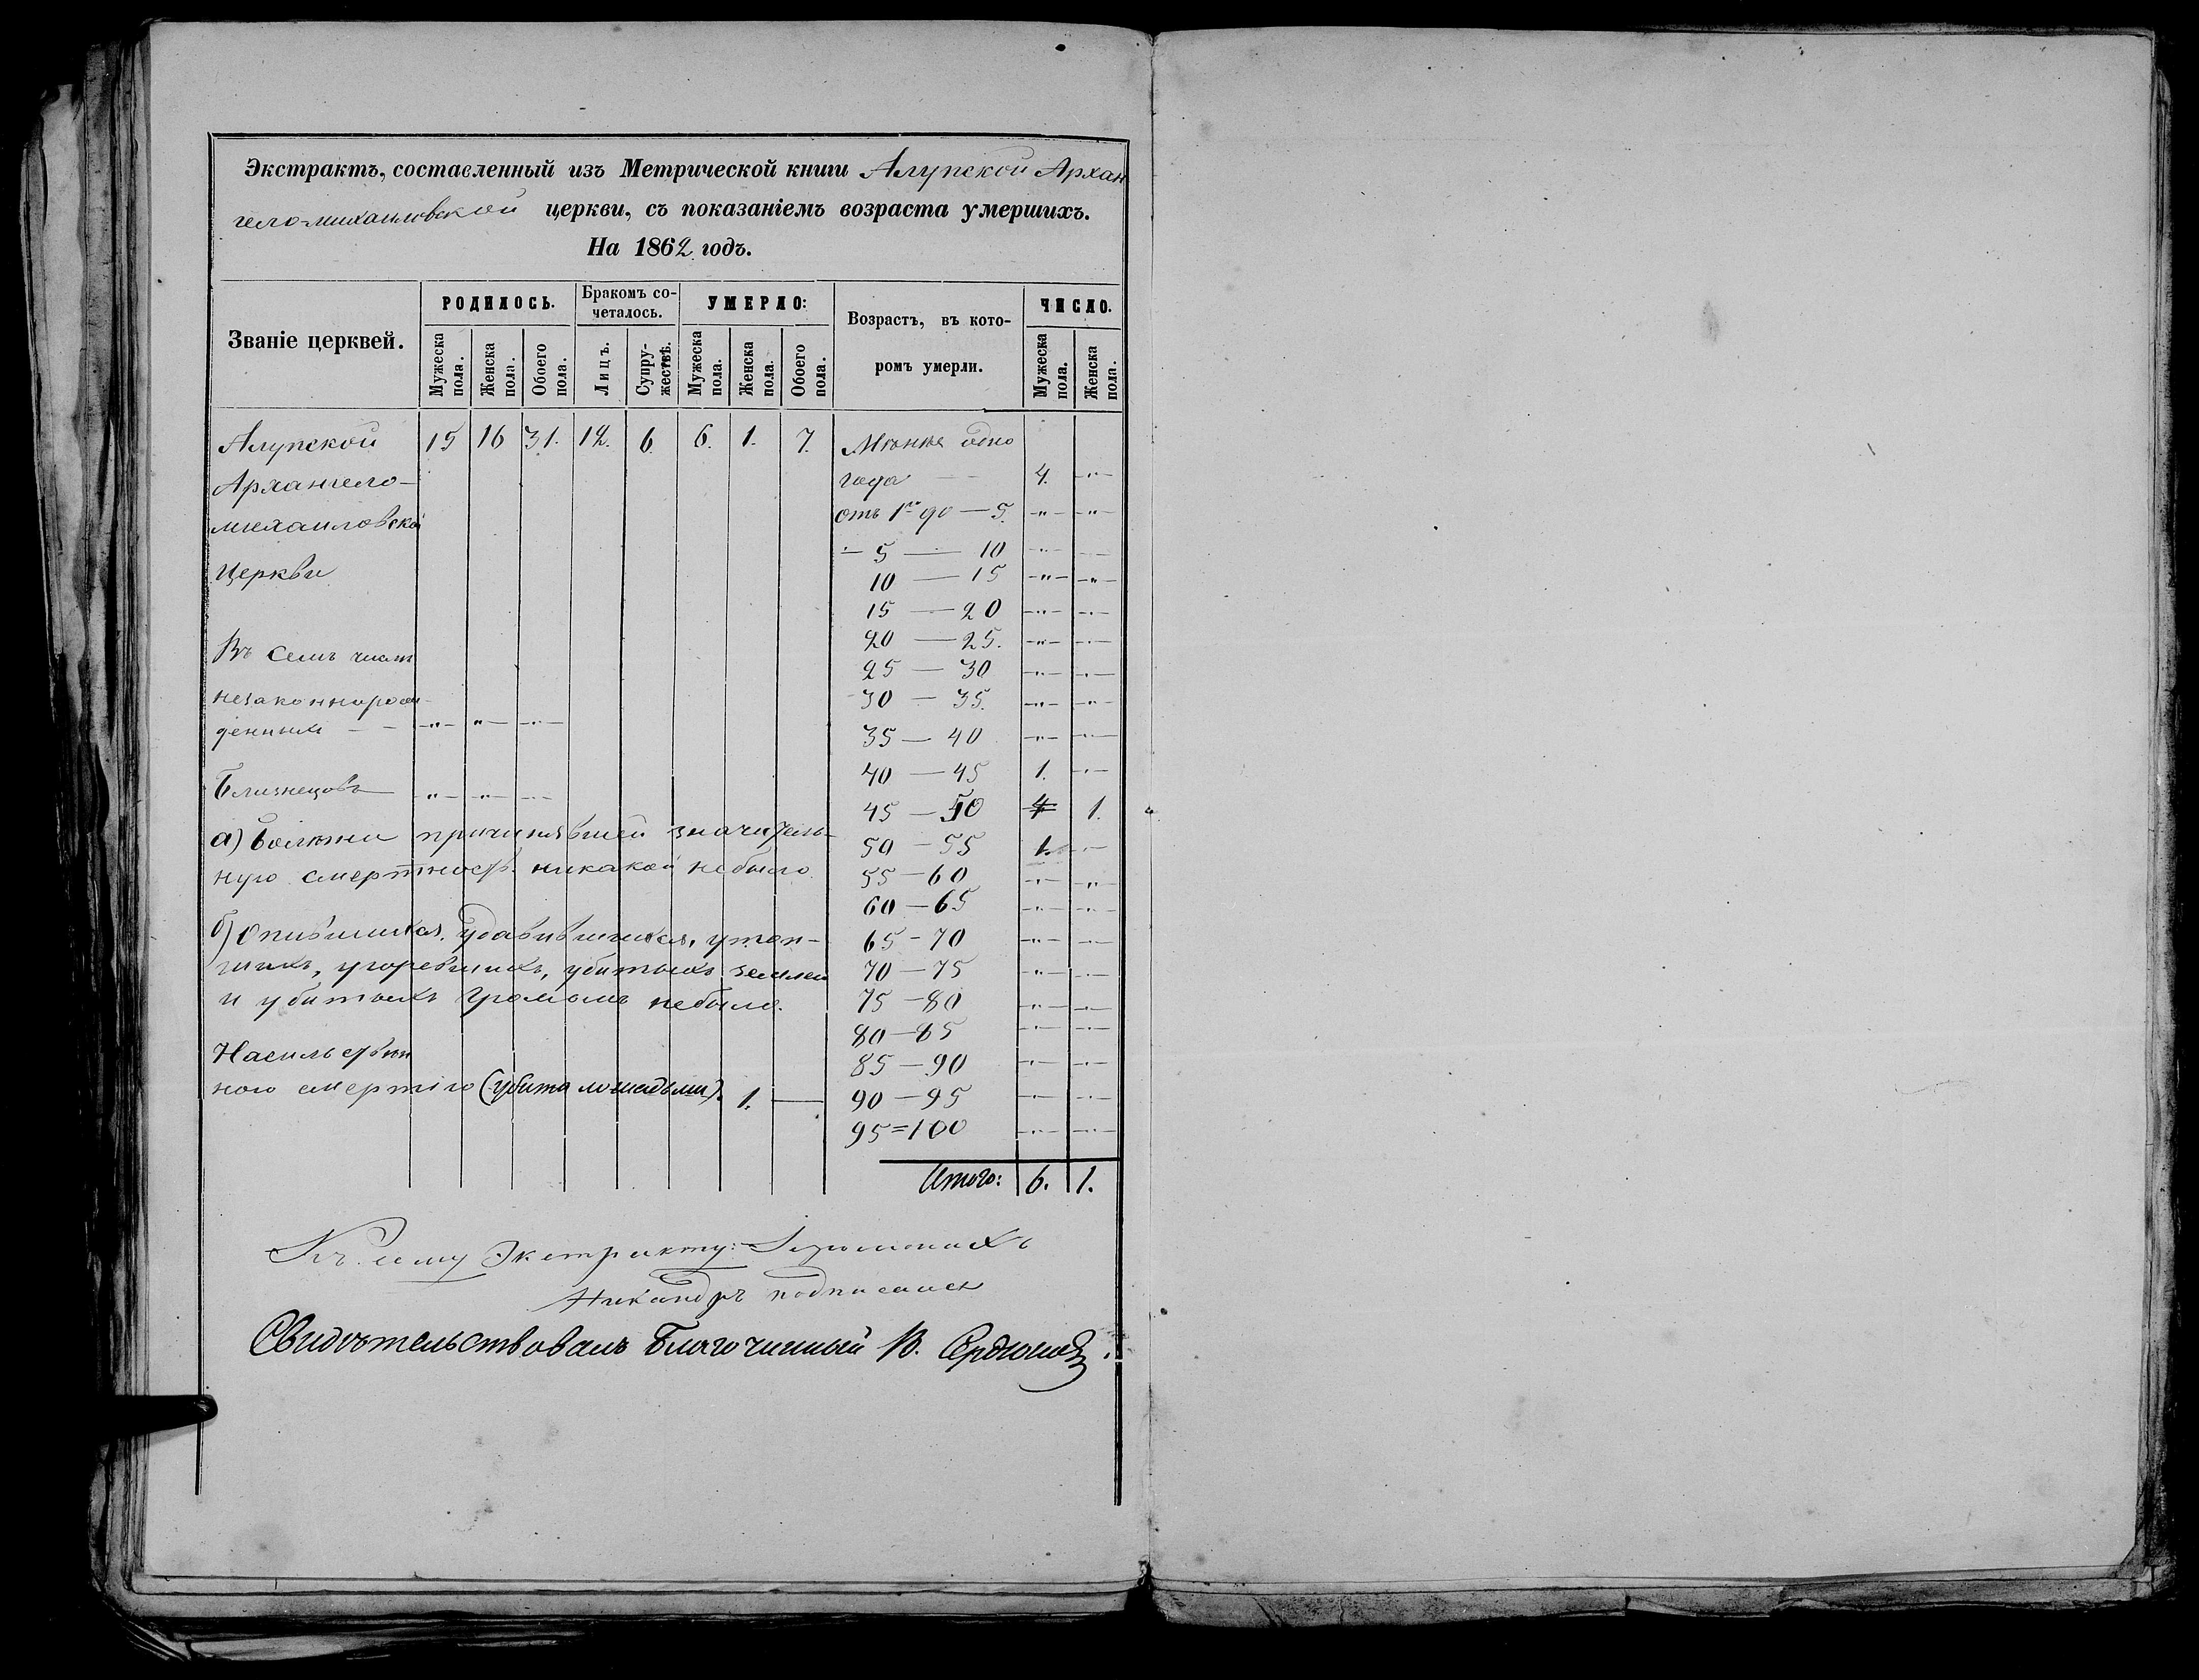 Экстрактъ, составленный изъ Метрической книги Алупской Архан
гело-михаиловской церкви, съ показаніемъ возраста умершихъ.
На 1862 годъ.
Званіе церквей. РОДИЛОСЬ. Бракомъ со-четалось. УМЕРЛО: Возрастъ, въ кото-ромъ умерли. ЧИСЛО.
Мужеска пола. Женска пола. Обоего пола. Лицъ. Супру-жествъ. Мужеска пола. Женска пола. Обоего пола. Мужеска пола. Женска пола.
Алупской 15 16 31. 12. 6. 6. 1. 7. Менѣе одно
Архангело- года — 4. -"-
михаиловской отъ 1го до — 5. -"- -"-
— 5 — 10 -"- -"-
Церкви 10 — 15 -"- -"-
15 — 20 -"- -"-
20 — 25. -"- -"-
Въ семъ числѣ 25 — 30 -"- -"-
незаконнорож- 30 — 35. -"- -"-
денныхъ — -"- -"- -"- 35 — 40 -"- -"-
Близнецовъ -"- -"- -"- 40 — 45 1. -"-
45 — 50 1.
а) Болѣзни причинявшей значитель-
50 — 55 1. -"-
ную смертность никакой небыло 55 — 60 -"- -"-
60 — 65 -"- -"-
б) Опившихся, удавившихся, утоп- 65 - 70 -"- -"-
шихъ, угоревшихъ, убитыхъ землей 70 — 75 -"- -"-
и убитыхъ громомъ небыло. 75 — 80 -"- -"-
80 — 85 -"- -"-
Насильствен 85 — 90 -"- -"-
ною смертію (убита лошадьми). 1. — 90 — 95 -"- -"-
95 = 100 -"- -"-
Итого: 6. 1.
Къ сему Экстракту: Іеромонахъ
Никандръ подписался
Свидѣтельствовалъ Благочинный В.